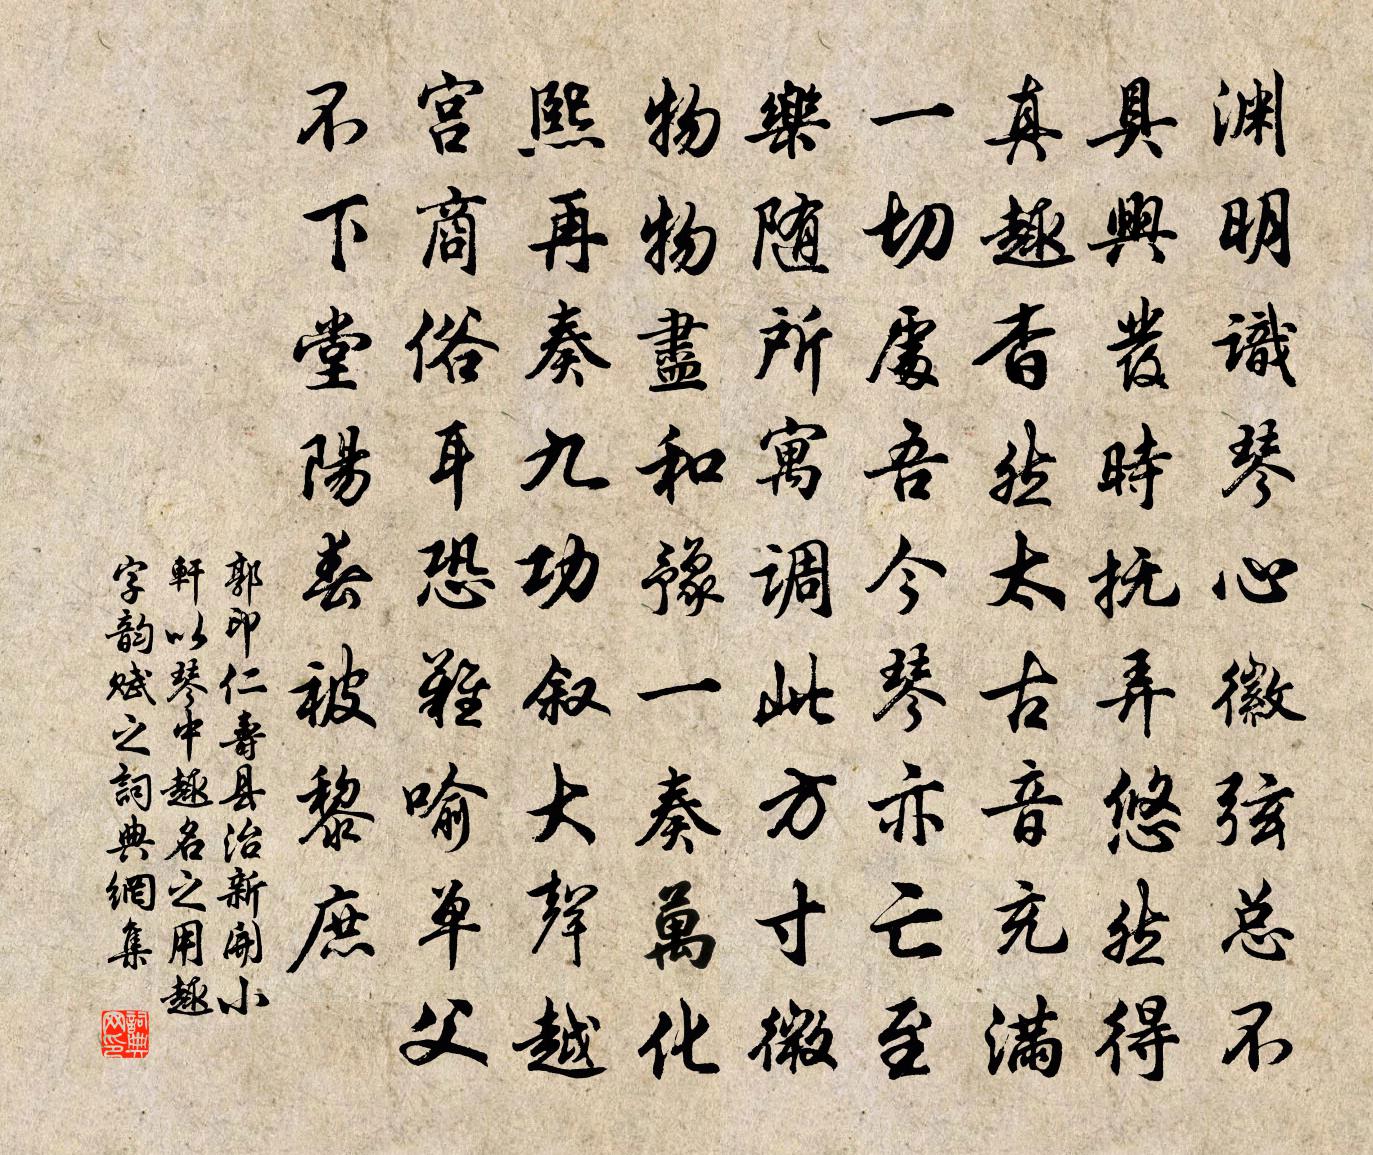 渊明識琴心徽弦总不
具興發時抚弄悠然得
真趣杳然太古音充满
一切處吾今琴亦亡至
樂随所寓调此方寸徽
物物盡和豫一奏萬化
熙再奏九功叙大聲越
宫商俗耳恐難喻单父
不下堂陽春被黎庶
郭印仁壽县治新開小
軒以琴中趣名之用趣
字韵赋之詞典網集
詞典
网印